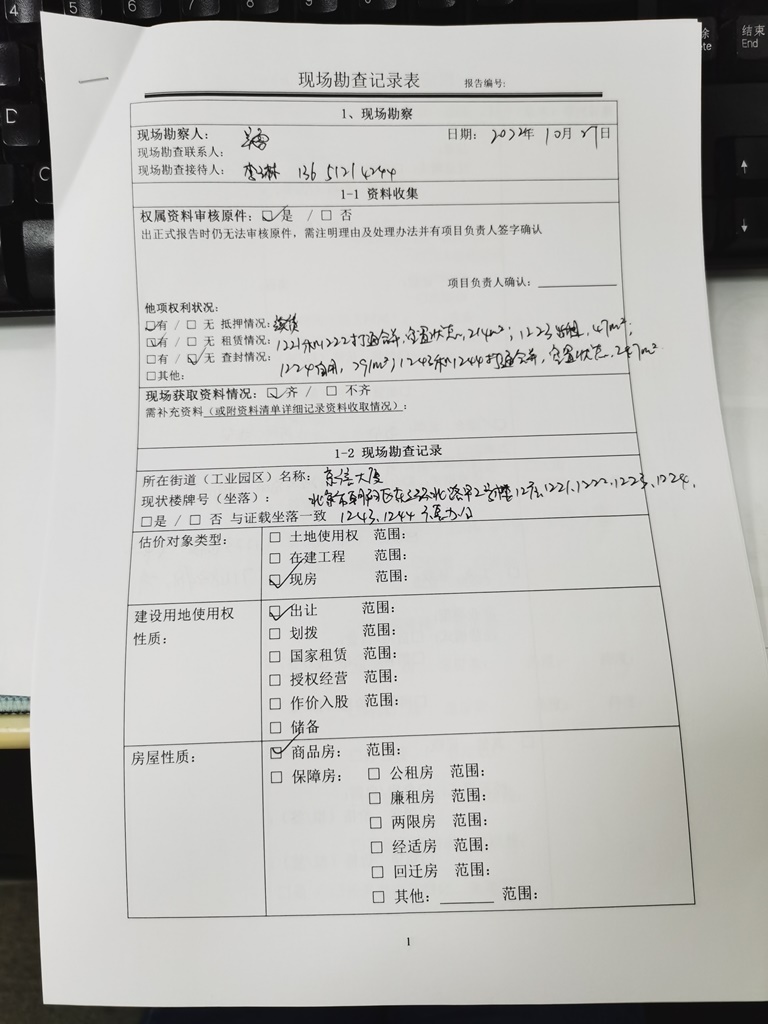 4 5 6 7 8
D
C
结束
End
↑
↓
现场勘查记录表 报告编号:
1、现场勘察
现场勘察人: 日期: 2022年 10月 27日
现场勘查联系人:
现场勘查接待人: 136 5121 4244
1-1 资料收集
权属资料审核原件: ☑ 是 / □ 否
出正式报告时仍无法审核原件，需注明理由及处理办法并有项目负责人签字确认
项目负责人确认: ________
他项权利状况:
☑有 / □ 无 抵押情况: 续贷
☑有 / □ 无 租赁情况: 1221和1222打通合并，空置状态，214m²; 1223出租，47m²;
□有 / ☑ 无 查封情况: 1224自用，291m²; 1243和1244打通合并，空置状态，247m²
□其他:
现场获取资料情况: ☑ 齐 / □ 不齐
需补充资料（或附资料清单详细记录资料收取情况）:
1-2 现场勘查记录
所在街道（工业园区）名称: 京信大厦
现状楼牌号（坐落）: 北京市朝阳区东三环北路甲2号楼12层1221、1222、1223、1224、
□是 / □ 否 与证载坐落一致 1243、1244 办公
估价对象类型: □ 土地使用权 范围:
□ 在建工程 范围:
☑ 现房 范围:
建设用地使用权 ☑ 出让 范围:
性质: □ 划拨 范围:
□ 国家租赁 范围:
□ 授权经营 范围:
□ 作价入股 范围:
□ 储备
房屋性质: ☑ 商品房: 范围:
□ 保障房: □ 公租房 范围:
□ 廉租房 范围:
□ 两限房 范围:
□ 经适房 范围:
□ 回迁房 范围:
□ 其他: ______ 范围:
1